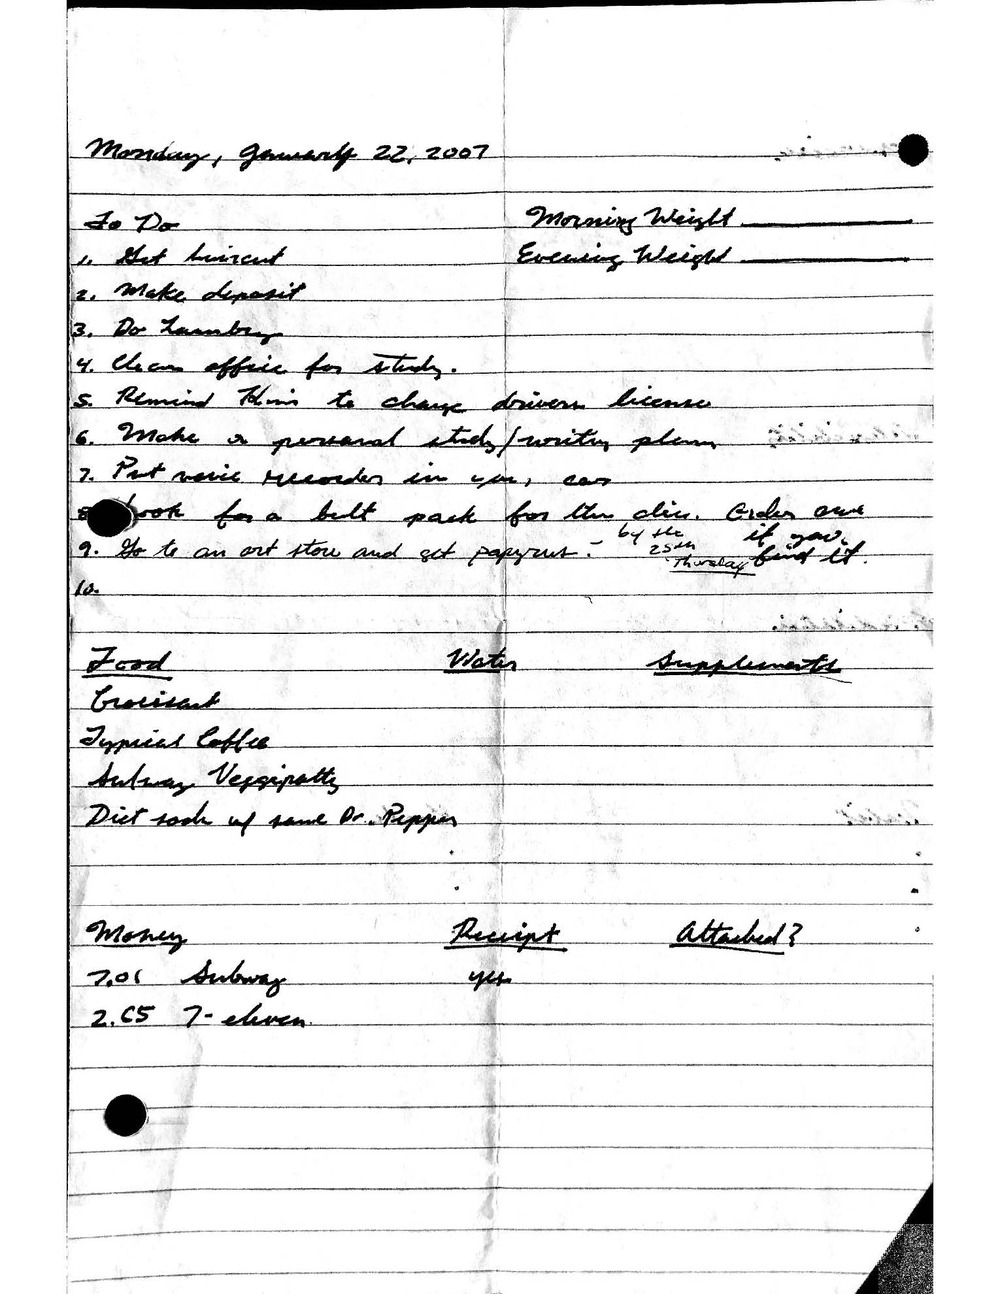 Monday, January 22, 2007
To Do
Morning Weight
1. Get haircut
Evening Weight
2. Make deposit
3. Do Laundry
4. Clean office for study.
5. Remind Kim to change drivers license
6. Make a personal study/writing plan
7. Put voice recorder in your car
8. Look for a belt pack for the disc. Order one if you find it.
9. Go to an art store and get papyrus. - by the 25th Thursday
10.
Food Water Supplements
Croissant
Typical Coffee
Subway Veggipatty
Diet soda w/ some Dr. Pepper
Money Receipt Attached?
7.01 Subway yes
2.65 7-eleven